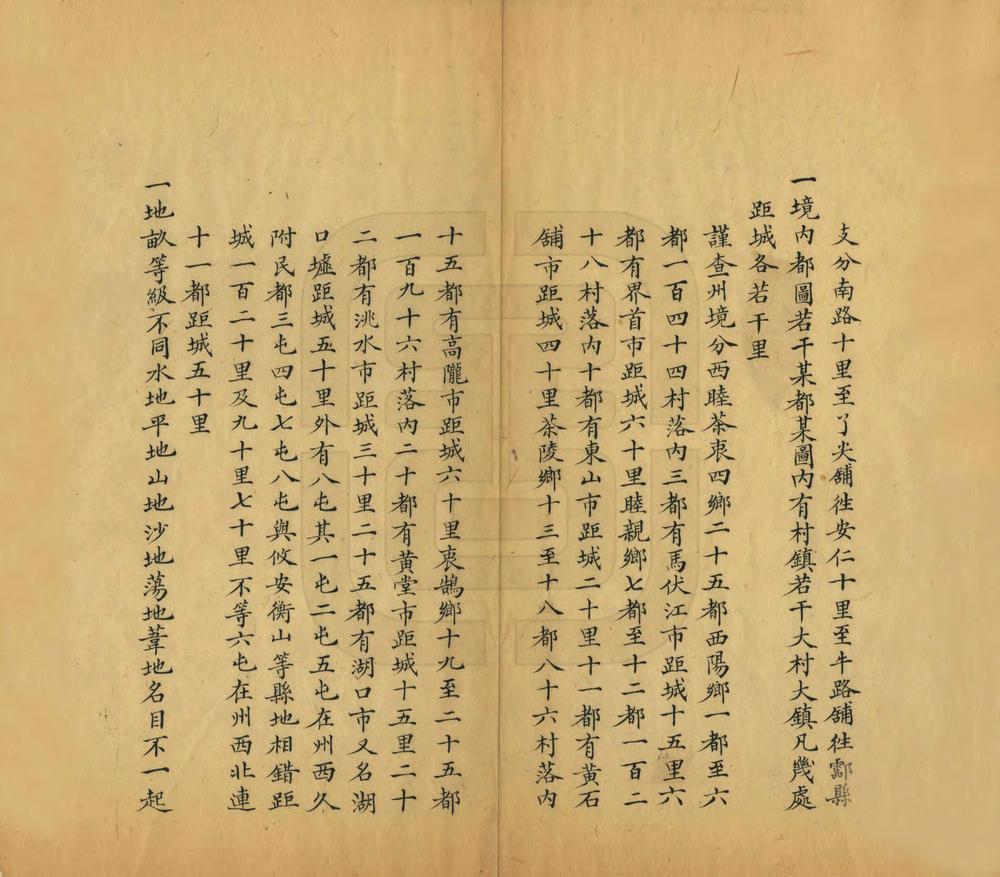 支分南路十里至了尖舖徃安仁十里至牛路舖徃酃縣
一境內都圖若干某都某圖內有村鎮若干大村大鎮凡幾處
距城各若干里
謹查州境分西睦茶衷四鄉二十五都西陽鄉一都至六
都一百四十四村落內三都有馬伏江市距城十五里六
都有界首市距城六十里睦親鄉七都至十二都一百二
十八村落內十都有東山市距城二十里十一都有黃石
舖市距城四十里茶陵鄉十三至十八都八十六村落內
十五都有高隴市距城六十里衷鵠鄉十九至二十五都
一百九十六村落內二十都有黃堂市距城十五里二十
二都有洮水市距城三十里二十五都有湖口市又名湖
口墟距城五十里外有八屯其一屯二屯五屯在州西久
附民都三屯四屯七屯八屯與攸安衡山等縣地相錯距
城一百二十里及九十里七十里不等六屯在州西北連
十一都距城五十里
一地畝等級不同水地平地山地沙地蕩地葦地名目不一起